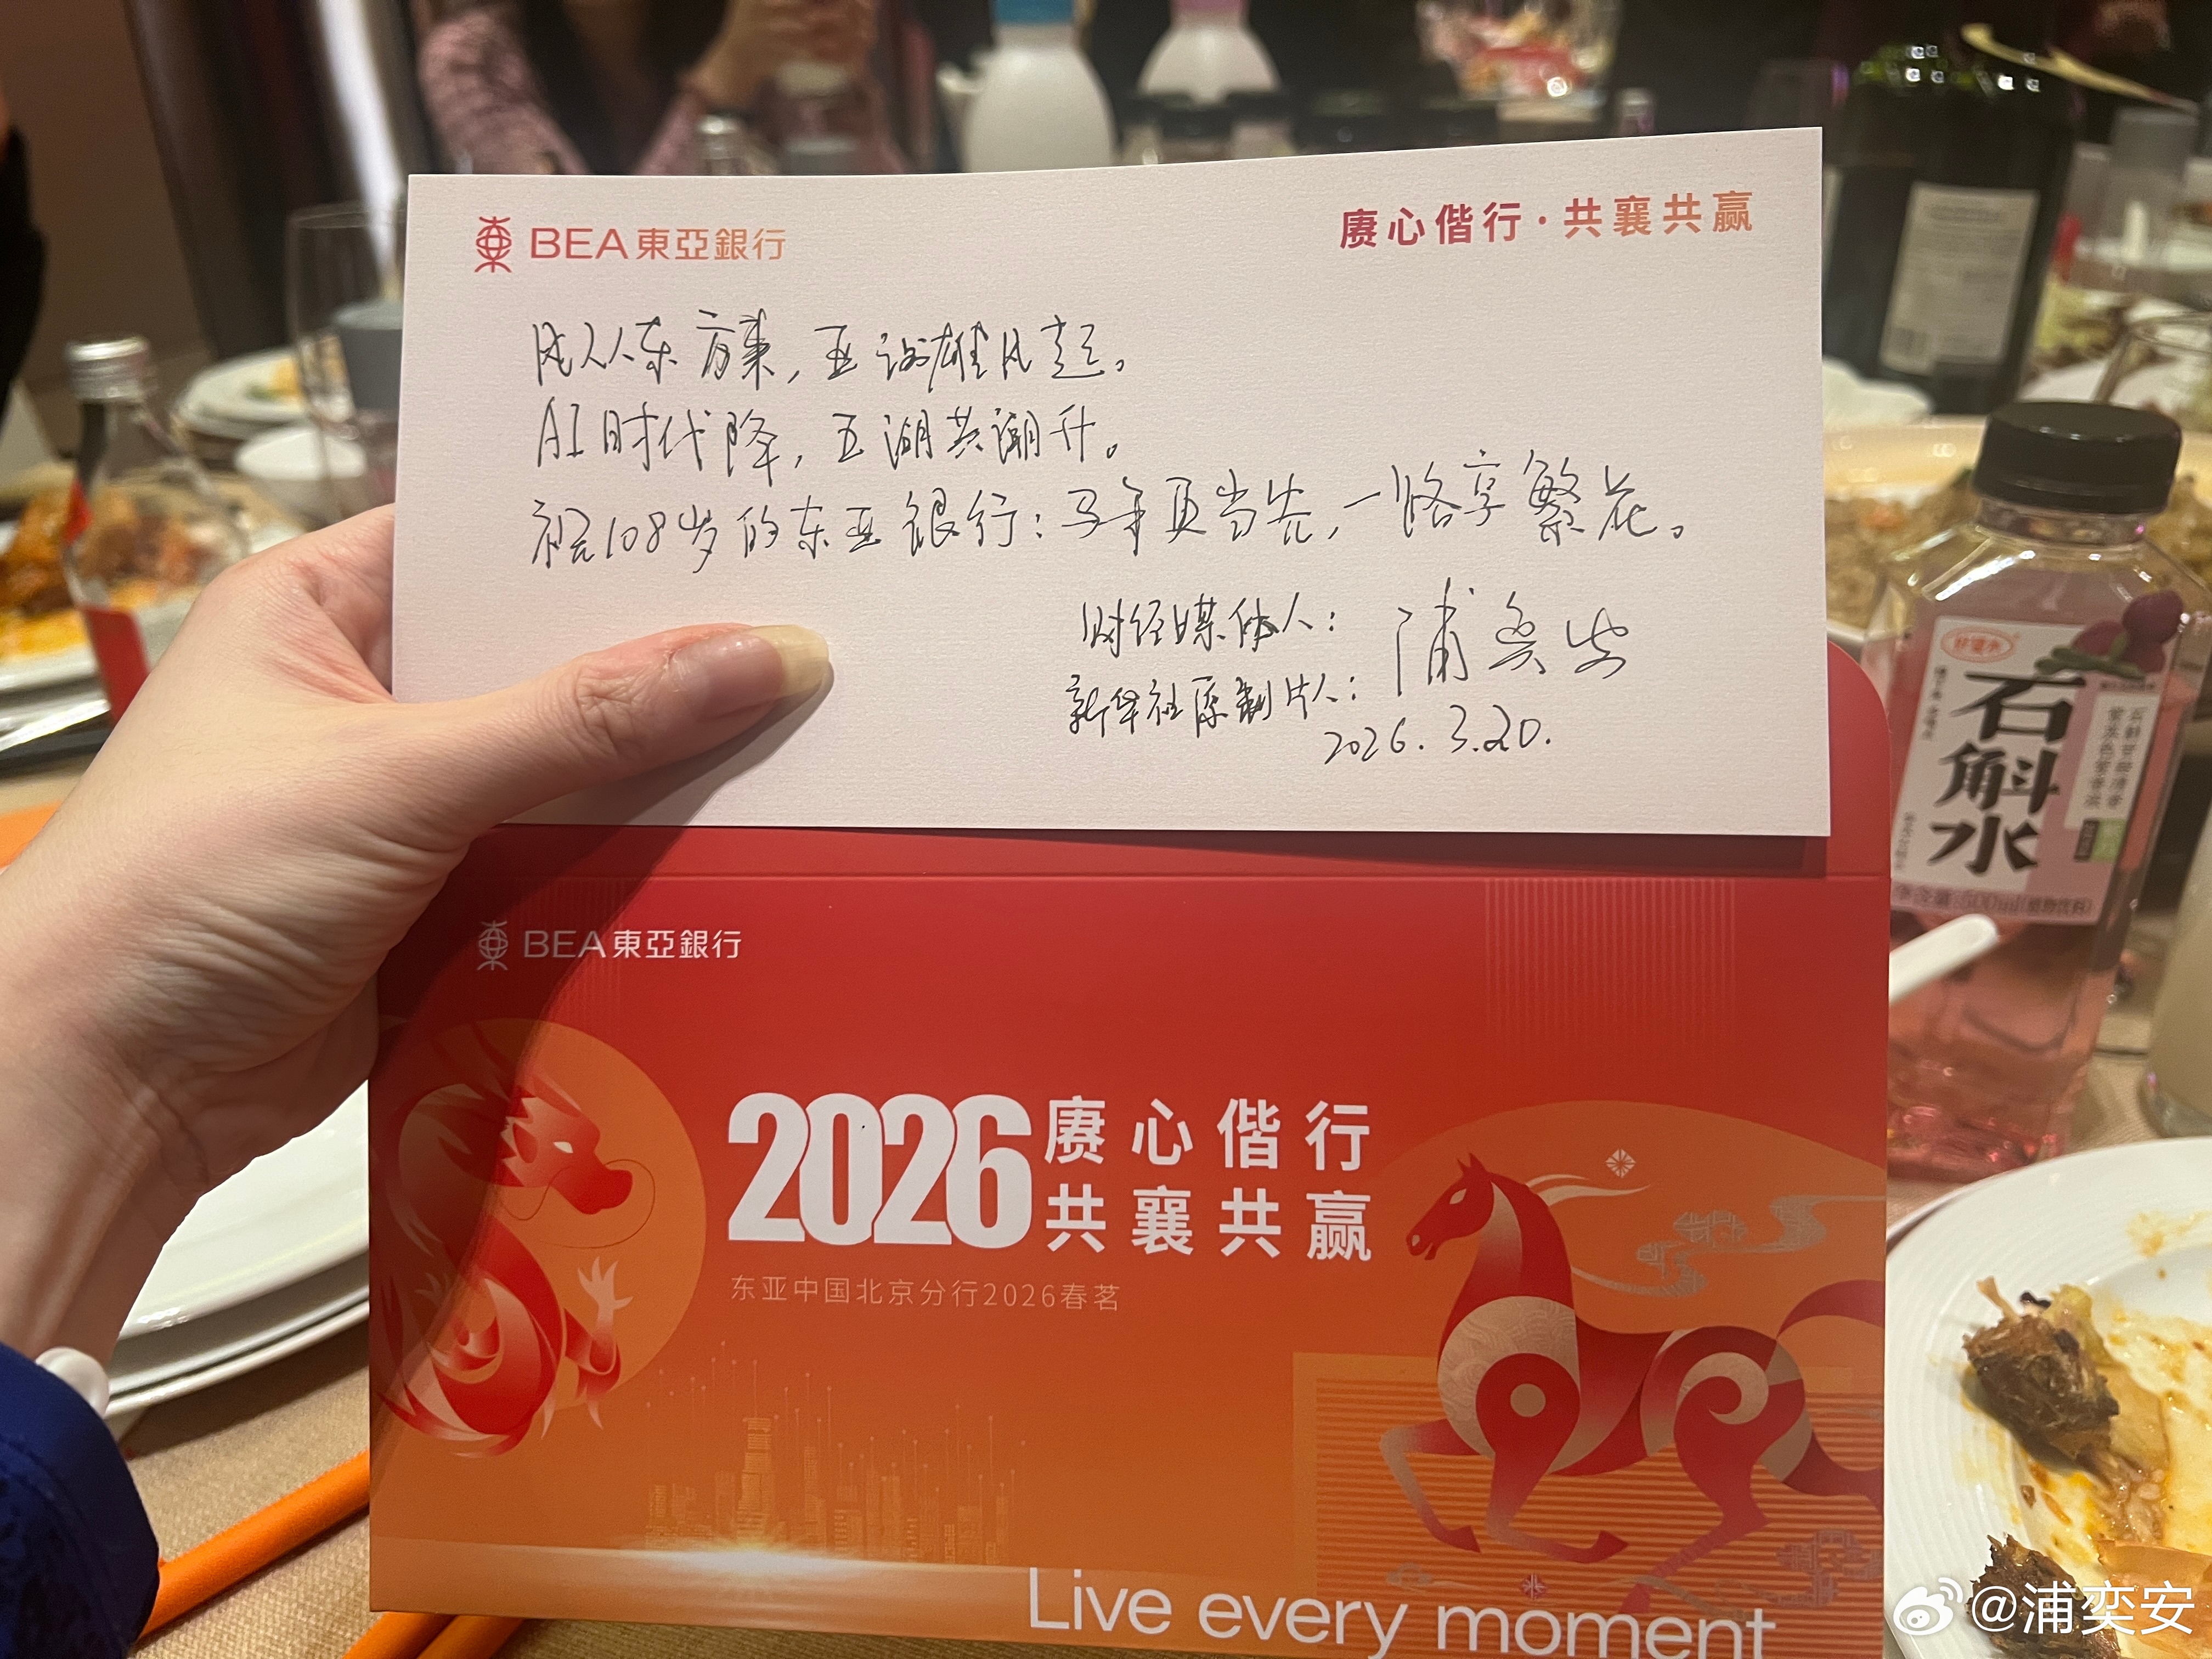 BEA東亞銀行
赓心偕行·共襄共赢
风从东方来，亚洲雄风起。
AI时代降，五湖共潮升。
祝108岁的东亚银行：马年更当先，一路享繁花。
财经媒体人：浦奕安
新华社原制片人：
2026.3.20.
BEA東亞銀行
2026赓心偕行
共襄共赢
东亚中国北京分行2026春茗
Live every moment
石斛水
@浦奕安